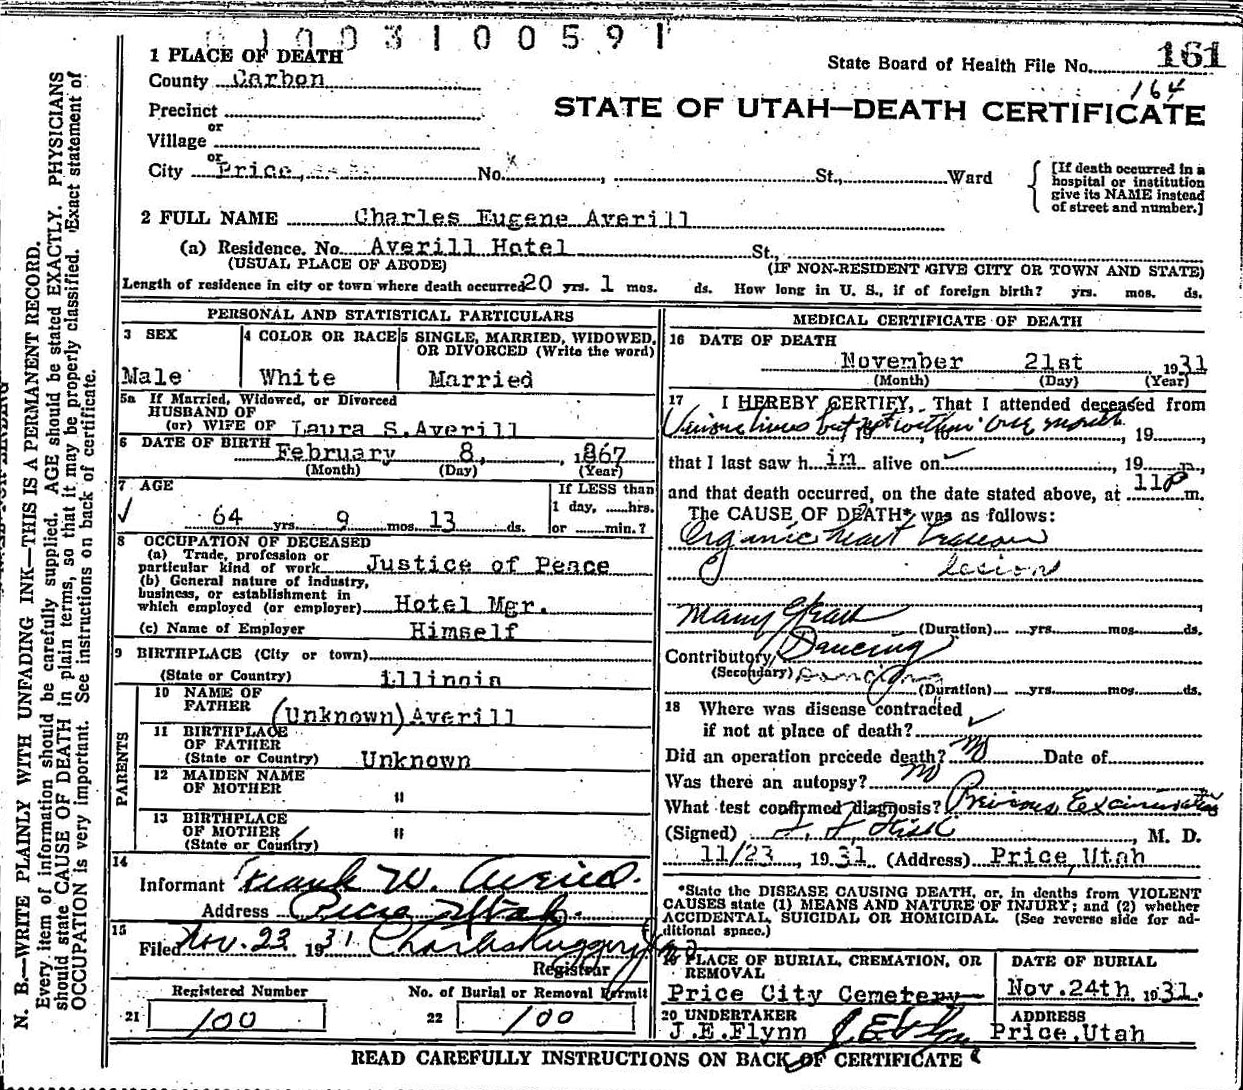 1003100591
1 PLACE OF DEATH
State Board of Health File No. 161
164
County Carbon
STATE OF UTAH—DEATH CERTIFICATE
Precinct
or
Village
or
City Price, No. , St., Ward
[If death occurred in a
hospital or institution
give its NAME instead
of street and number.]
2 FULL NAME Charles Eugene Averill
(a) Residence. No. Averill Hotel St.,
(USUAL PLACE OF ABODE) (IF NON-RESIDENT GIVE CITY OR TOWN AND STATE)
Length of residence in city or town where death occurred 20 yrs. 1 mos. ds. How long in U. S., if of foreign birth? yrs. mos. ds.
PERSONAL AND STATISTICAL PARTICULARS
3 SEX
Male
4 COLOR OR RACE
White
5 SINGLE, MARRIED, WIDOWED,
OR DIVORCED (Write the word)
Married
5a If Married, Widowed, or Divorced
HUSBAND OF
(or) WIFE OF Laura S. Averill
6 DATE OF BIRTH February 8, 1867
(Month) (Day) (Year)
7 AGE
64 yrs. 9 mos. 13 ds.
If LESS than
1 day, hrs.
or min.?
8 OCCUPATION OF DECEASED
(a) Trade, profession or
particular kind of work Justice of Peace
(b) General nature of industry,
business, or establishment in
which employed (or employer) Hotel Mgr.
(c) Name of Employer Himself
9 BIRTHPLACE (City or town)
(State or Country) Illinois
PARENTS
10 NAME OF
FATHER (Unknown) Averill
11 BIRTHPLACE
OF FATHER
(State or Country) Unknown
12 MAIDEN NAME
OF MOTHER "
13 BIRTHPLACE
OF MOTHER "
(State or Country)
14
Informant Frank W. Averill.
Address Price Utah.
15
Filed Nov. 23 1931 Charles Ruggeri
Registrar
Registered Number
21 100
No. of Burial or Removal Permit
22 100
MEDICAL CERTIFICATE OF DEATH
16 DATE OF DEATH
November 21st 1931
(Month) (Day) (Year)
17 I HEREBY CERTIFY, That I attended deceased from
Various times but not within one month , 19 ,
that I last saw h im alive on , 19 ,
and that death occurred, on the date stated above, at 11 P m.
The CAUSE OF DEATH* was as follows:
Organic heart
lesion
Many years
(Duration) yrs. mos. ds.
Contributory Dancing
(Secondary) Dancing
(Duration) yrs. mos. ds.
18 Where was disease contracted
if not at place of death?
Did an operation precede death? no Date of
Was there an autopsy? no
What test confirmed diagnosis? Previous Examination
(Signed) Fisk , M. D.
11/23, 1931 (Address) Price, Utah
*State the DISEASE CAUSING DEATH, or, in deaths from VIOLENT
CAUSES state (1) MEANS AND NATURE OF INJURY; and (2) whether
ACCIDENTAL, SUICIDAL OR HOMICIDAL. (See reverse side for ad-
ditional space.)
19 PLACE OF BURIAL, CREMATION, OR
REMOVAL
Price City Cemetery
DATE OF BURIAL
Nov. 24th. 1931.
20 UNDERTAKER
J.E.Flynn J.E. Flynn
ADDRESS
Price, Utah
READ CAREFULLY INSTRUCTIONS ON BACK OF CERTIFICATE
N. B.—WRITE PLAINLY WITH UNFADING INK—THIS IS A PERMANENT RECORD.
Every item of information should be carefully supplied. AGE should be stated EXACTLY. PHYSICIANS
should state CAUSE OF DEATH in plain terms, so that it may be properly classified. Exact statement of
OCCUPATION is very important. See instructions on back of certificate.